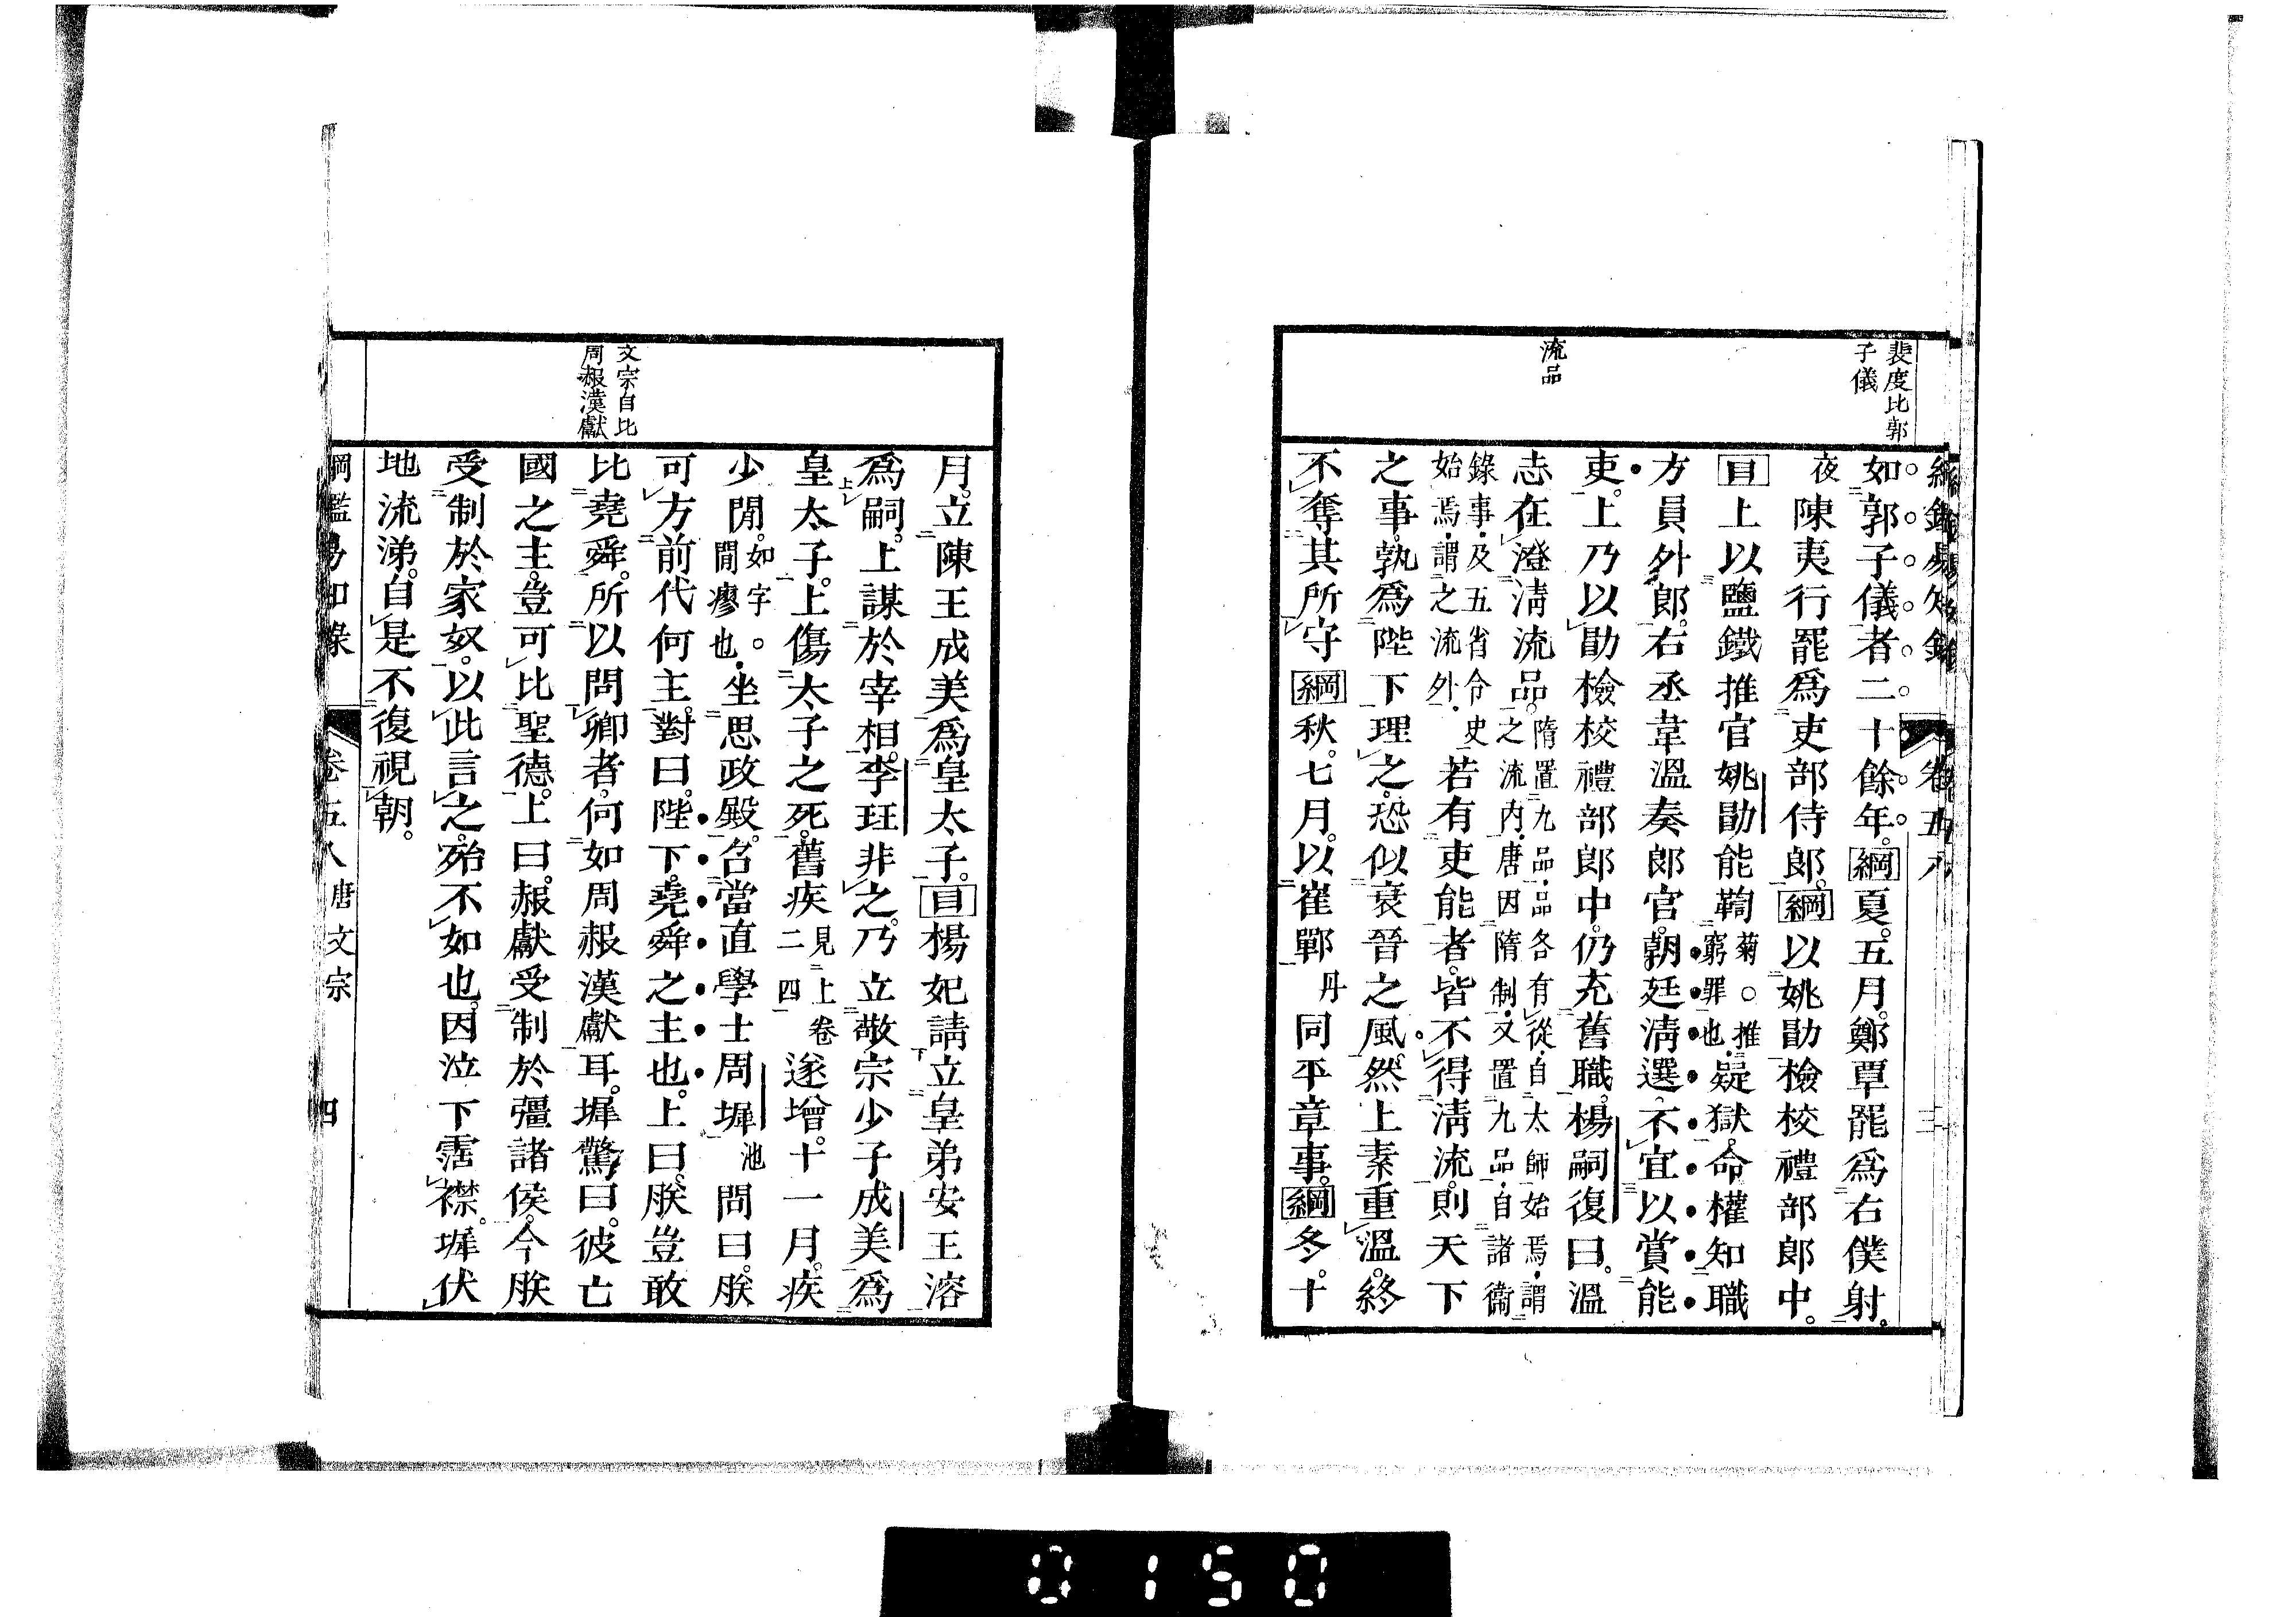 裴度比郭
子儀
流品
如郭子儀者二十餘年。綱夏。五月。鄭覃罷爲右僕射。
夜陳夷行罷爲吏部侍郎。綱以姚勖檢校禮部郎中。
目上以鹽鐵推官姚勖能鞫菊。推窮罪也。疑獄。命權知職
方員外郎。右丞韋溫奏郎官。朝廷淸選。不宜以賞能
吏。上乃以勖檢校禮部郎中。仍充舊職。楊嗣復曰。溫
志在澄淸流品。隋置九品。品各有從。自太師始焉。謂之流內。唐因隋制。又置九品。自諸衞
錄事。及五省令史始焉。謂之流外。若有吏能者。皆不得淸流。則天下
之事。孰爲陛下理之。恐似衰晉之風。然上素重溫。終
不奪其所守綱秋。七月。以崔鄲丹同平章事。綱冬。十
文宗自比
周赧漢獻
月。立陳王成美爲皇太子。目楊妃請立皇弟安王溶
爲嗣。上謀於宰相。李珏非之。乃立敬宗少子成美爲
皇太子。上傷太子之死。舊疾見上卷二四遂增。十一月。疾
少閒。如字。閒瘳也。坐思政殿。召當直學士周墀池問曰。朕
可方前代何主。對曰。陛下。堯舜之主也。上曰。朕豈敢
比堯舜。所以問卿者。何如周赧漢獻耳。墀驚曰。彼亡
國之主。豈可比聖德。上曰。赧獻受制於彊諸侯。今朕
受制於家奴。以此言之。殆不如也。因泣下霑襟。墀伏
地流涕。自是不復視朝。
綱鑑易知錄 卷五八 唐文宗 四
0150